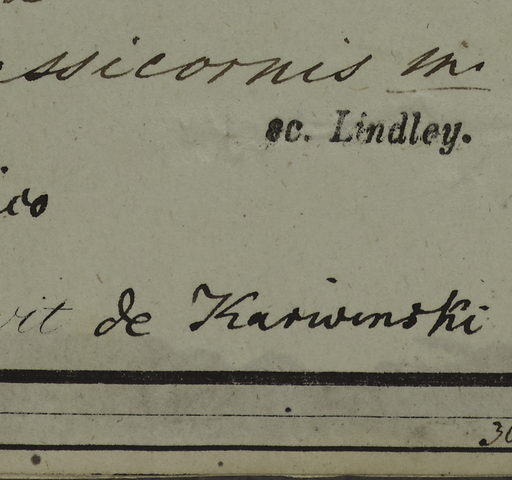 ssicornis m.
sc. Lindley.
ico
vit de Karwinski
30